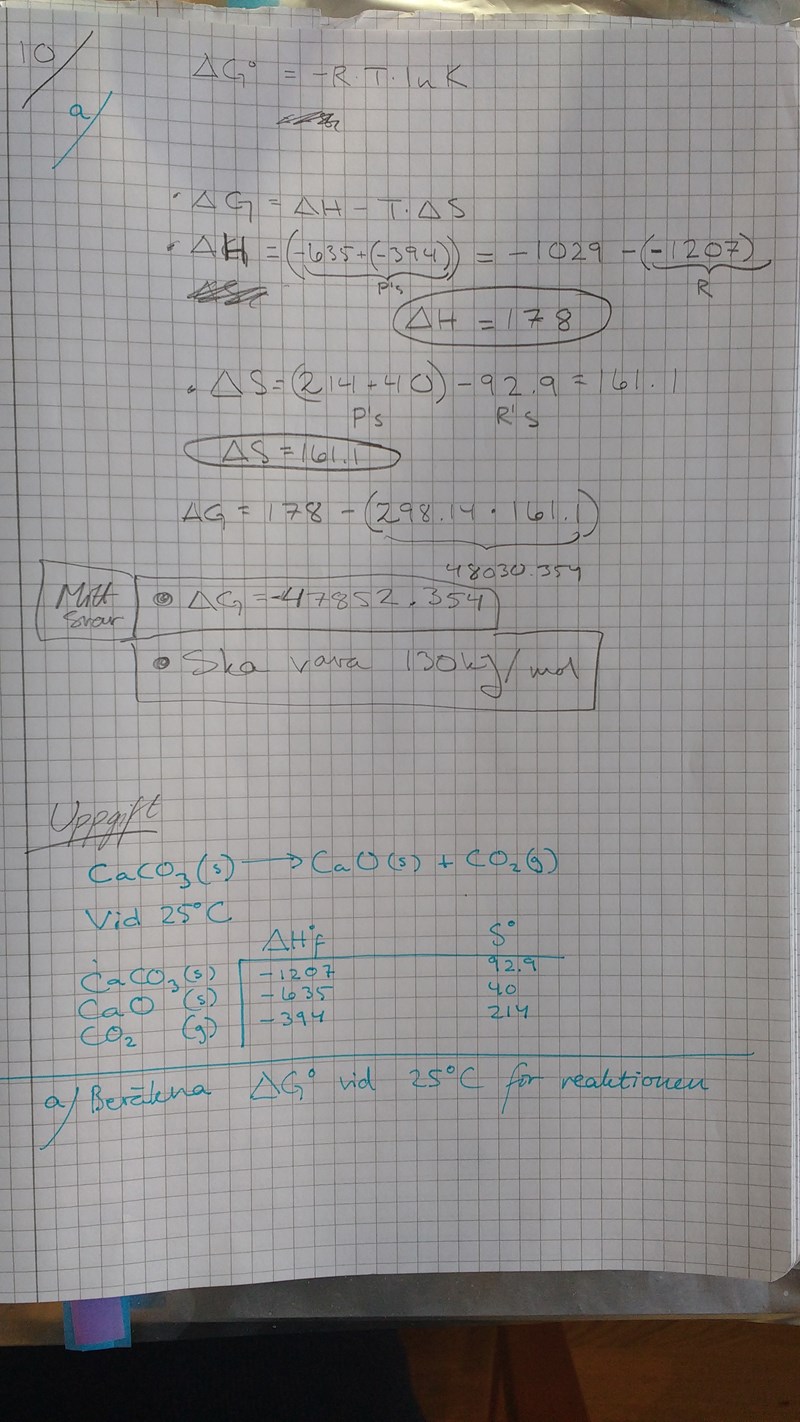 10/
a/
ΔG° = -R·T·lnK
· ΔG = ΔH - T·ΔS
· ΔH = (-635+(-394)) = -1029 - (-1207)
P's R
ΔH = 178
· ΔS = (214+40) - 92.9 = 161.1
P's R's
ΔS = 161.1
ΔG = 178 - (298.14 · 161.1)
48030.354
Mitt svar
• ΔG = -47852.354
• Ska vara 130kJ/mol
Uppgift
CaCO₃(s) → CaO(s) + CO₂(g)
Vid 25°C
ΔH°f S°
CaCO₃(s) -1207 92.9
CaO (s) -635 40
CO₂ (g) -394 214
a/ Beräkna ΔG° vid 25°C för reaktionen